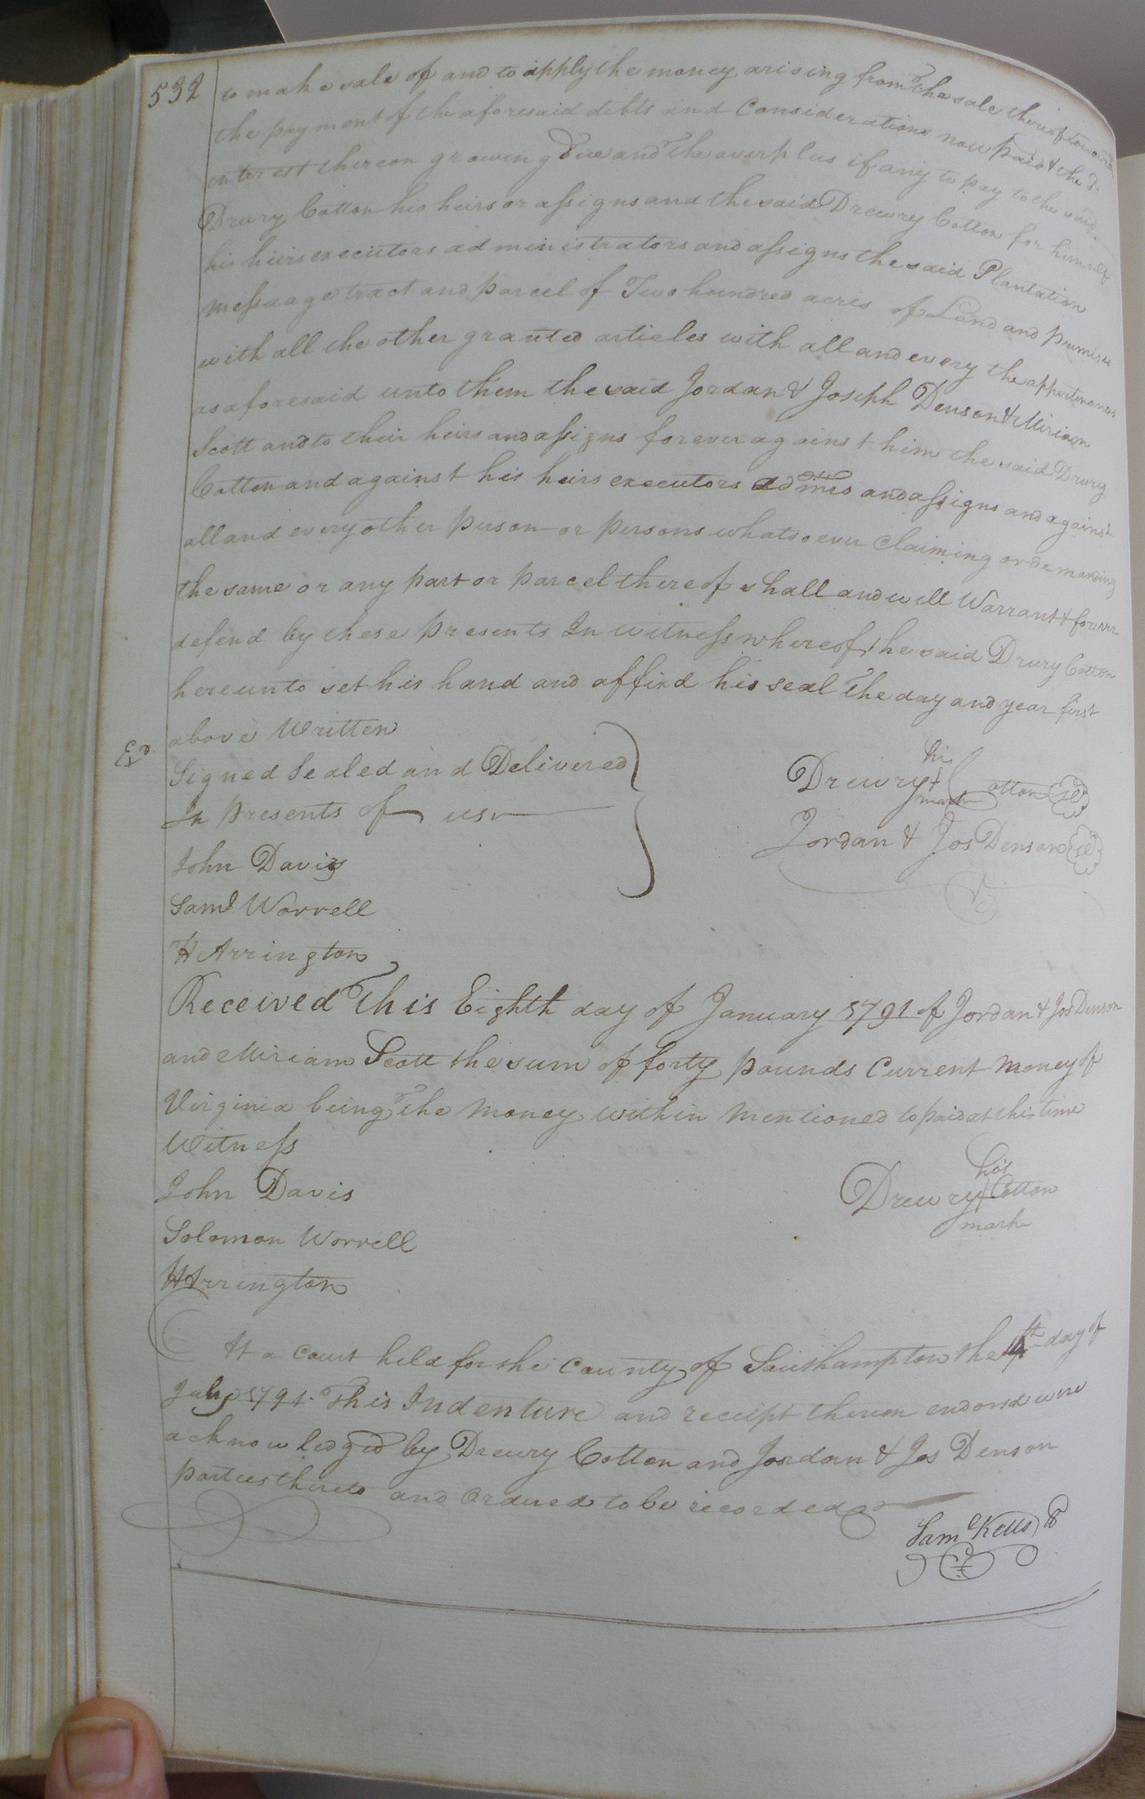 532
to make sale of and to apply the money arising from the sale thereof towards
the payment of the aforesaid debts and Considerations now paid & the
interest thereon growing due and the overplus if any to pay to the said
Drury Cotton his heirs or assigns and the said Drewry Cotton for himself
his heirs executors administrators and assigns the said Plantation
messuage tract and parcel of Two hundred acres of Land and premises
with all the other granted articles with all and every the appurtinances
as aforesaid unto them the said Jordan & Joseph Denson & Miriam
Scott and to their heirs and assigns forever against him the said Drury
Cotton and against his heirs executors and assigns and against
all and every other person or persons whatsoever Claiming or demanding
the same or any part or parcel thereof shall and will Warrant & forever
defend by these presents In witness whereof the said Drury Cotton
hereunto set his hand and affixd his seal the day and year first
above Written
Ex
Signed Sealed and Delivered
In presents of us
Drewry his + mark Cotton
Jordan & Jos Denson
John Davis
Saml Worrell
H Arrington
Received This Eighth day of January 1791 of Jordan & Jos Denson
and Miriam Scott the sum of forty pounds Current money of
Virginia being the money within mentioned to paid at this time
Witness
John Davis
Drewry his + mark Cotton
Solomon Worrell
H Arrington
At a Court held for the County of Southampton the 14th day of
July 1791. This Indenture and receipt thereon endorsd were
acknowledged by Drewry Cotton and Jordan & Jos Denson
parties thereto and Ordered to be recorded
Sam Kello